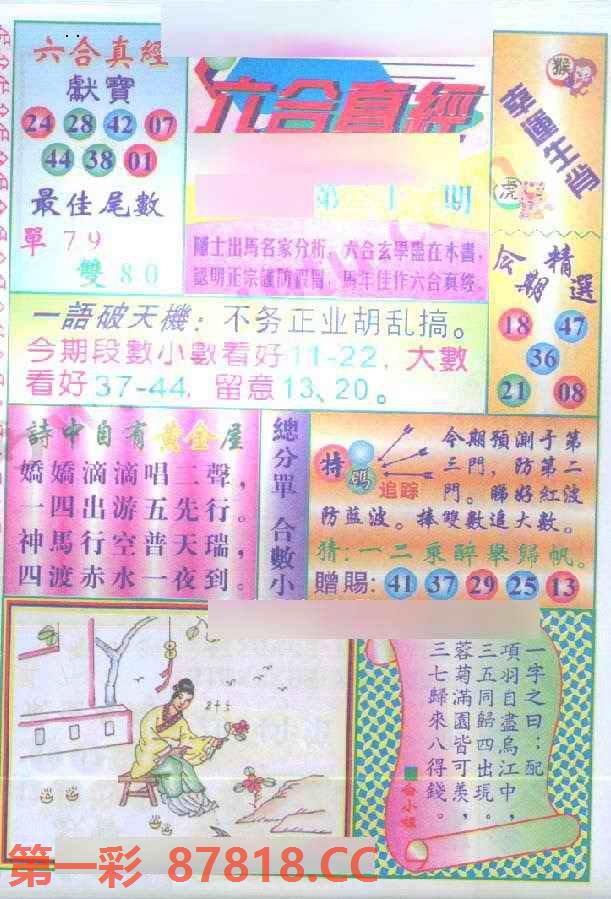 六合真經
獻寶
24 28 42 07
44 38 01
最佳尾數
單 7 9
雙 8 0
六合真經
第
期
隱士出馬名家分析，六合玄學盡在本書，
認明正宗謹防假冒，馬年佳作六合真經。
猴
幸運生肖
虎
今期精選
18 47
36
21 08
一語破天機：不务正业胡乱搞。
今期段數小數看好11-22，大數
看好37-44，留意13、20。
詩中自有黃金屋
嬌嬌滴滴唱二聲，
一四出游五先行。
神馬行空普天瑞，
四渡赤水一夜到。
總分單 合數小
特碼
追踪
今期預測于第
三門，防第二
門。睇好紅波
防藍波。捧雙數追大數。
猜：一二乘醉舉歸帆。
贈賜：41 37 29 25 13
一字之曰：配
項羽自盡烏江中，
三五同歸四出現。
蓉菊滿園皆可羨，
三七歸來八得錢。
白小姐
第一彩 87818.CC